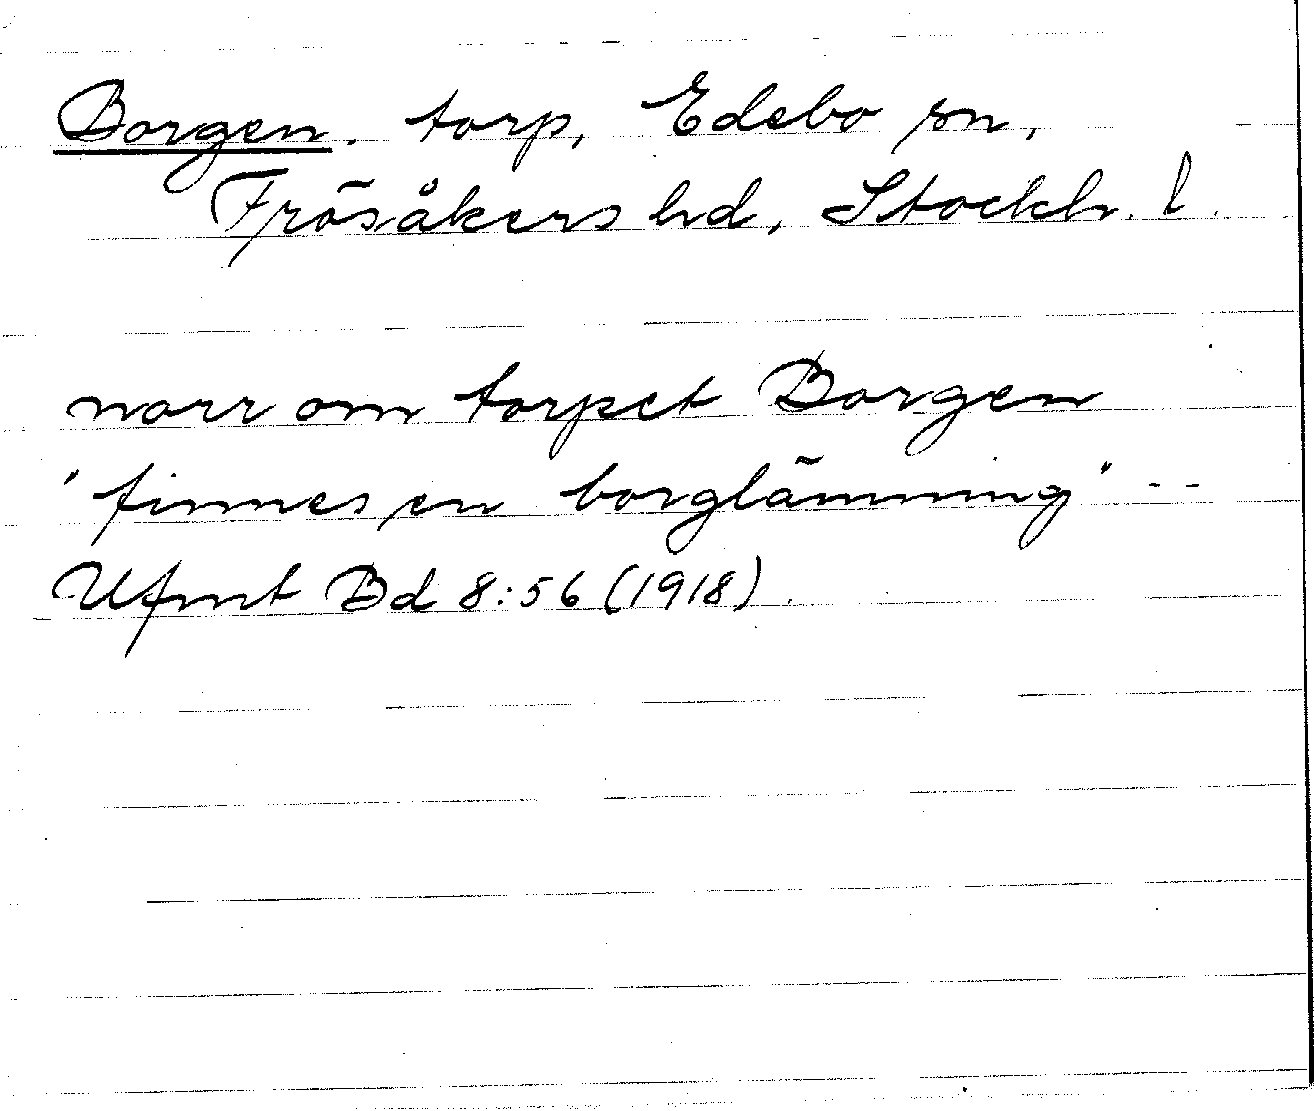 Borgen. torp, Edebo sn,
Frösåkers hd, Stockh. l.
norr om torpet Borgen
"finnes en borglämning" --
Ufmt Bd 8:56 (1918).